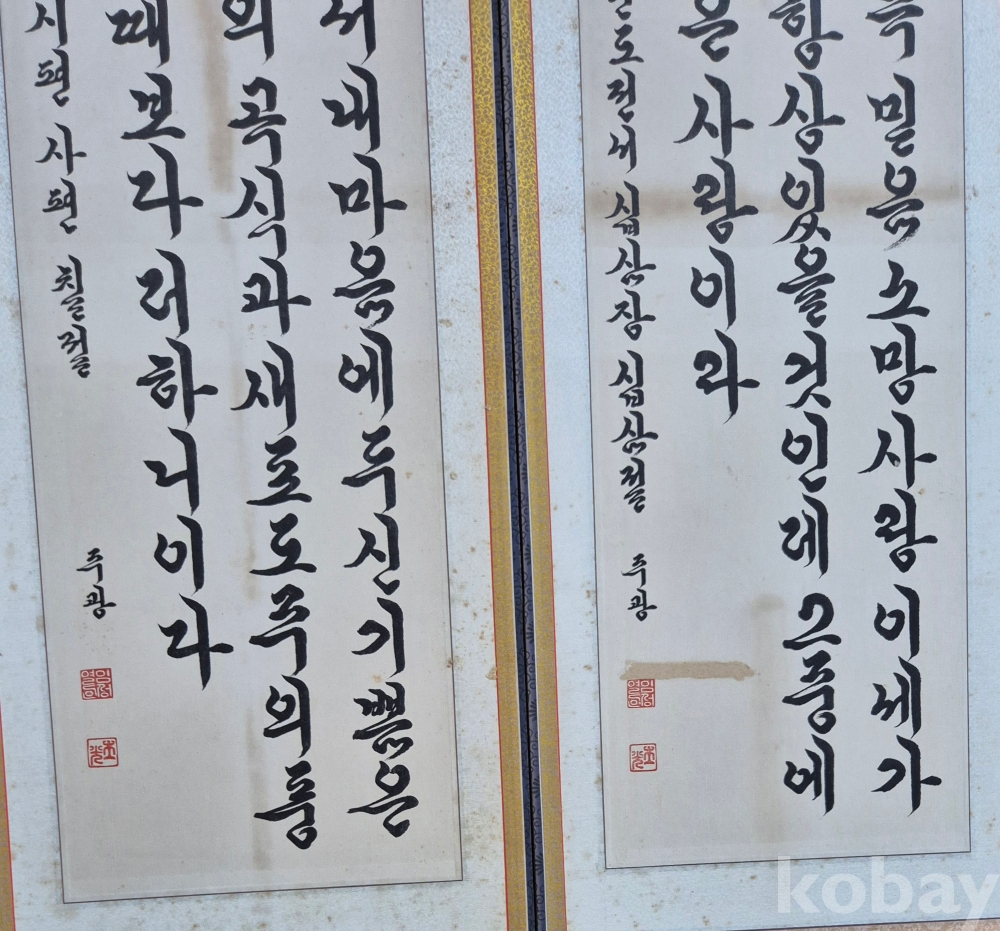 즉 믿음 소망 사랑 이 세가
항상 있을 것인데 그 중에
은 사랑이라
도전서 십삼장 십삼절 주광
서 내 마음에 두신 기쁨은
의 곡식과 새 포도주의 풍
때보다 더하니이다
시편 사편 칠절 주광
kobay